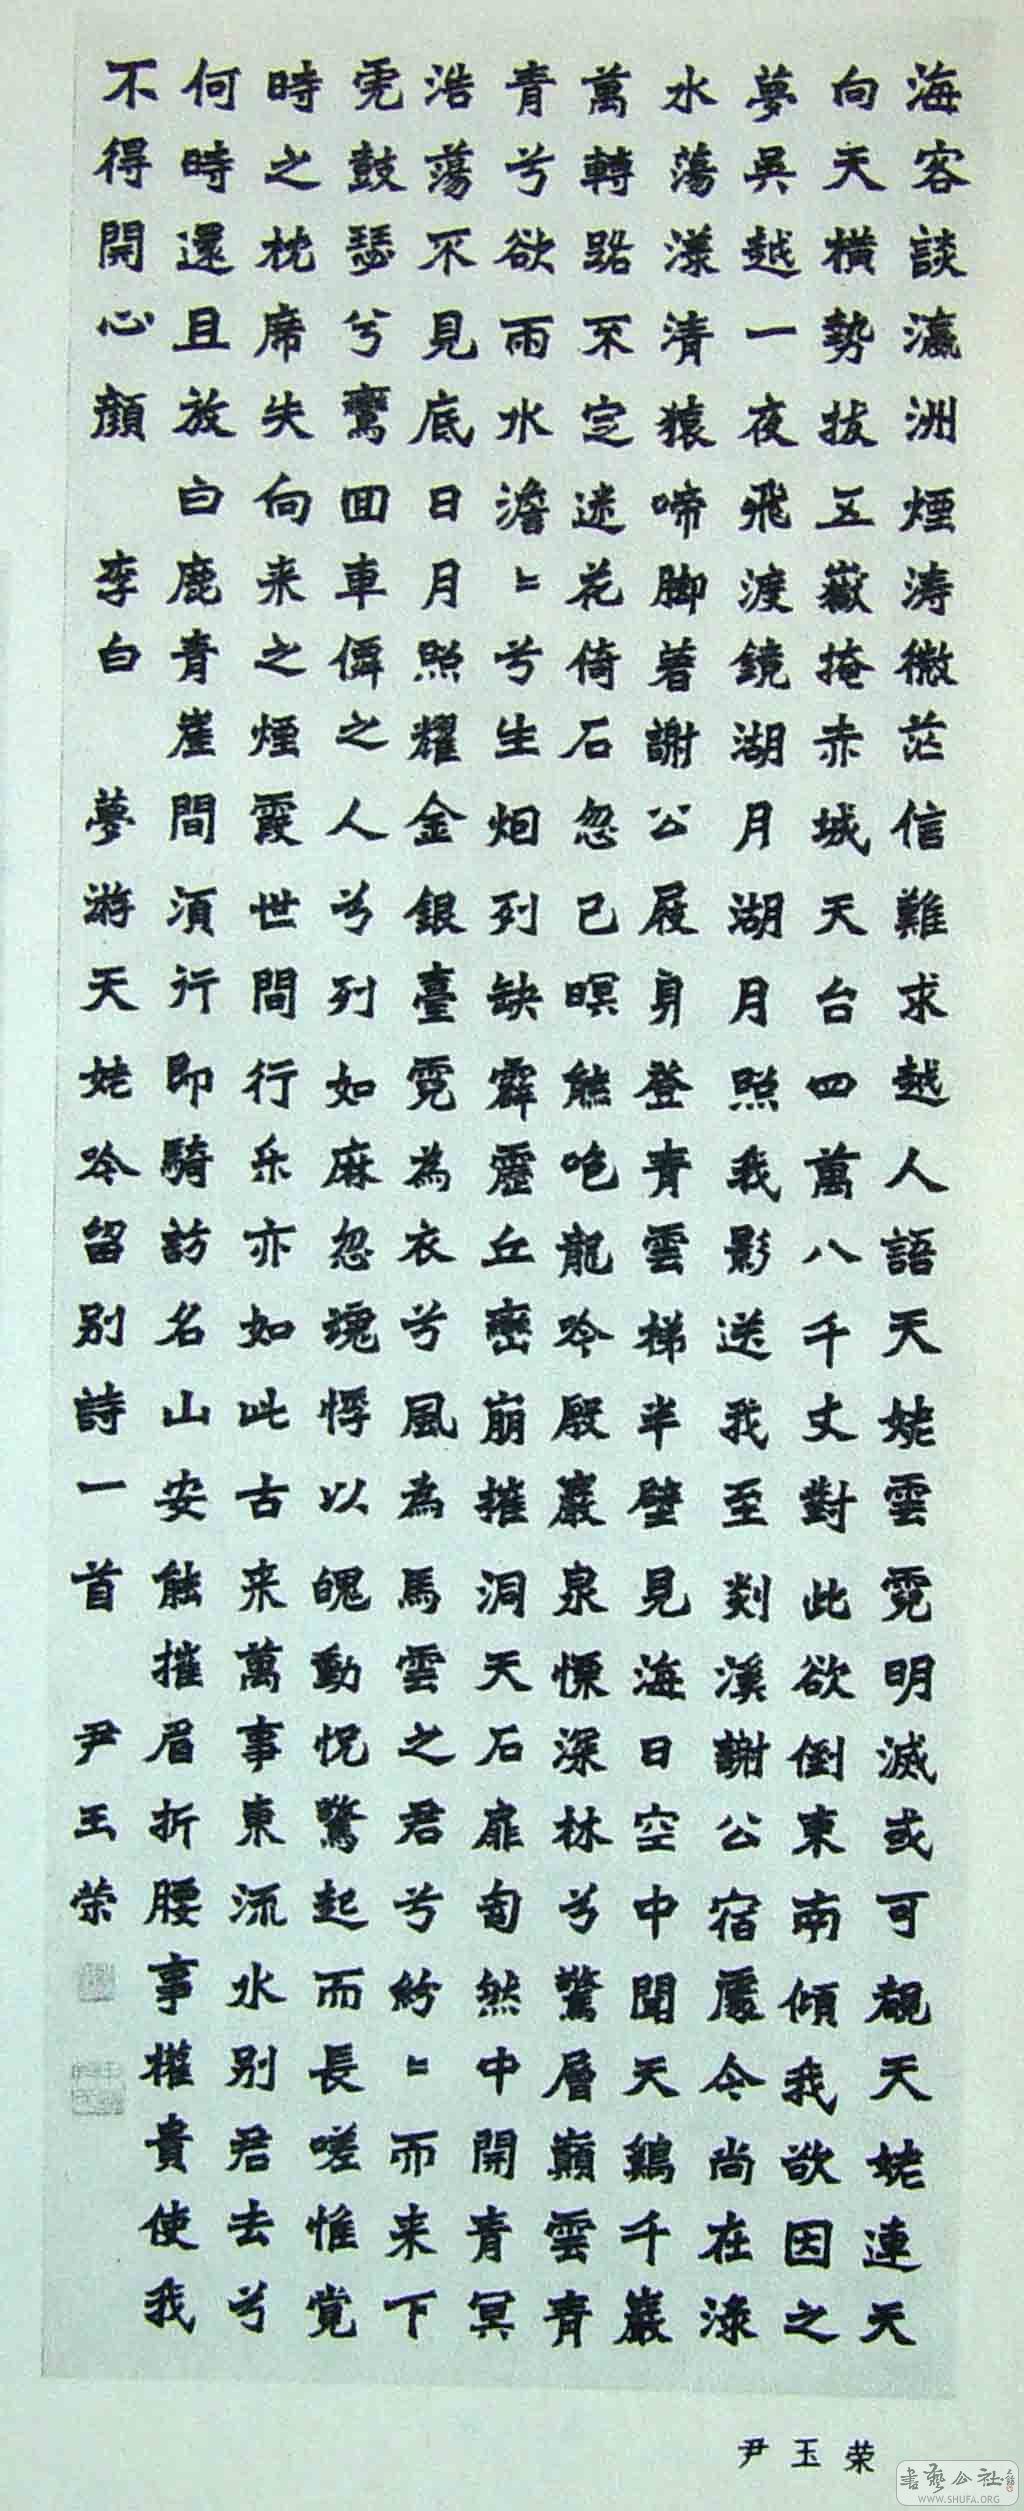 海客談瀛洲煙涛微茫信難求越人語天姥雲霓明滅或可覩天姥連天
向天橫勢拔五嶽掩赤城天台四萬八千丈對此欲倒東南傾我欲因之
夢吳越一夜飛渡鏡湖月湖月照我影送我至剡溪謝公宿處今尚在渌
水蕩漾清猿啼脚著謝公屐身登青雲梯半壁見海日空中聞天鷄千巖
萬轉路不定迷花倚石忽已暝熊咆龍吟殷巖泉慄深林兮驚層巔雲青
青兮欲雨水澹〻兮生烟列缺霹靂丘巒崩摧洞天石扉訇然中開青冥
浩蕩不見底日月照耀金銀臺霓為衣兮風為馬雲之君兮紛〻而来下
虎鼓瑟兮鸞回車僊之人兮列如麻忽魂悸以魄動怳驚起而長嗟惟覚
時之枕席失向来之煙霞世間行乐亦如此古来萬事東流水别君去兮
何時還且放白鹿青崖間須行即騎訪名山安能摧眉折腰事權貴使我
不得開心顏 李白 夢游天姥吟留别詩一首 尹玉荣
尹玉荣
書藝公社
WWW.SHUFA.ORG